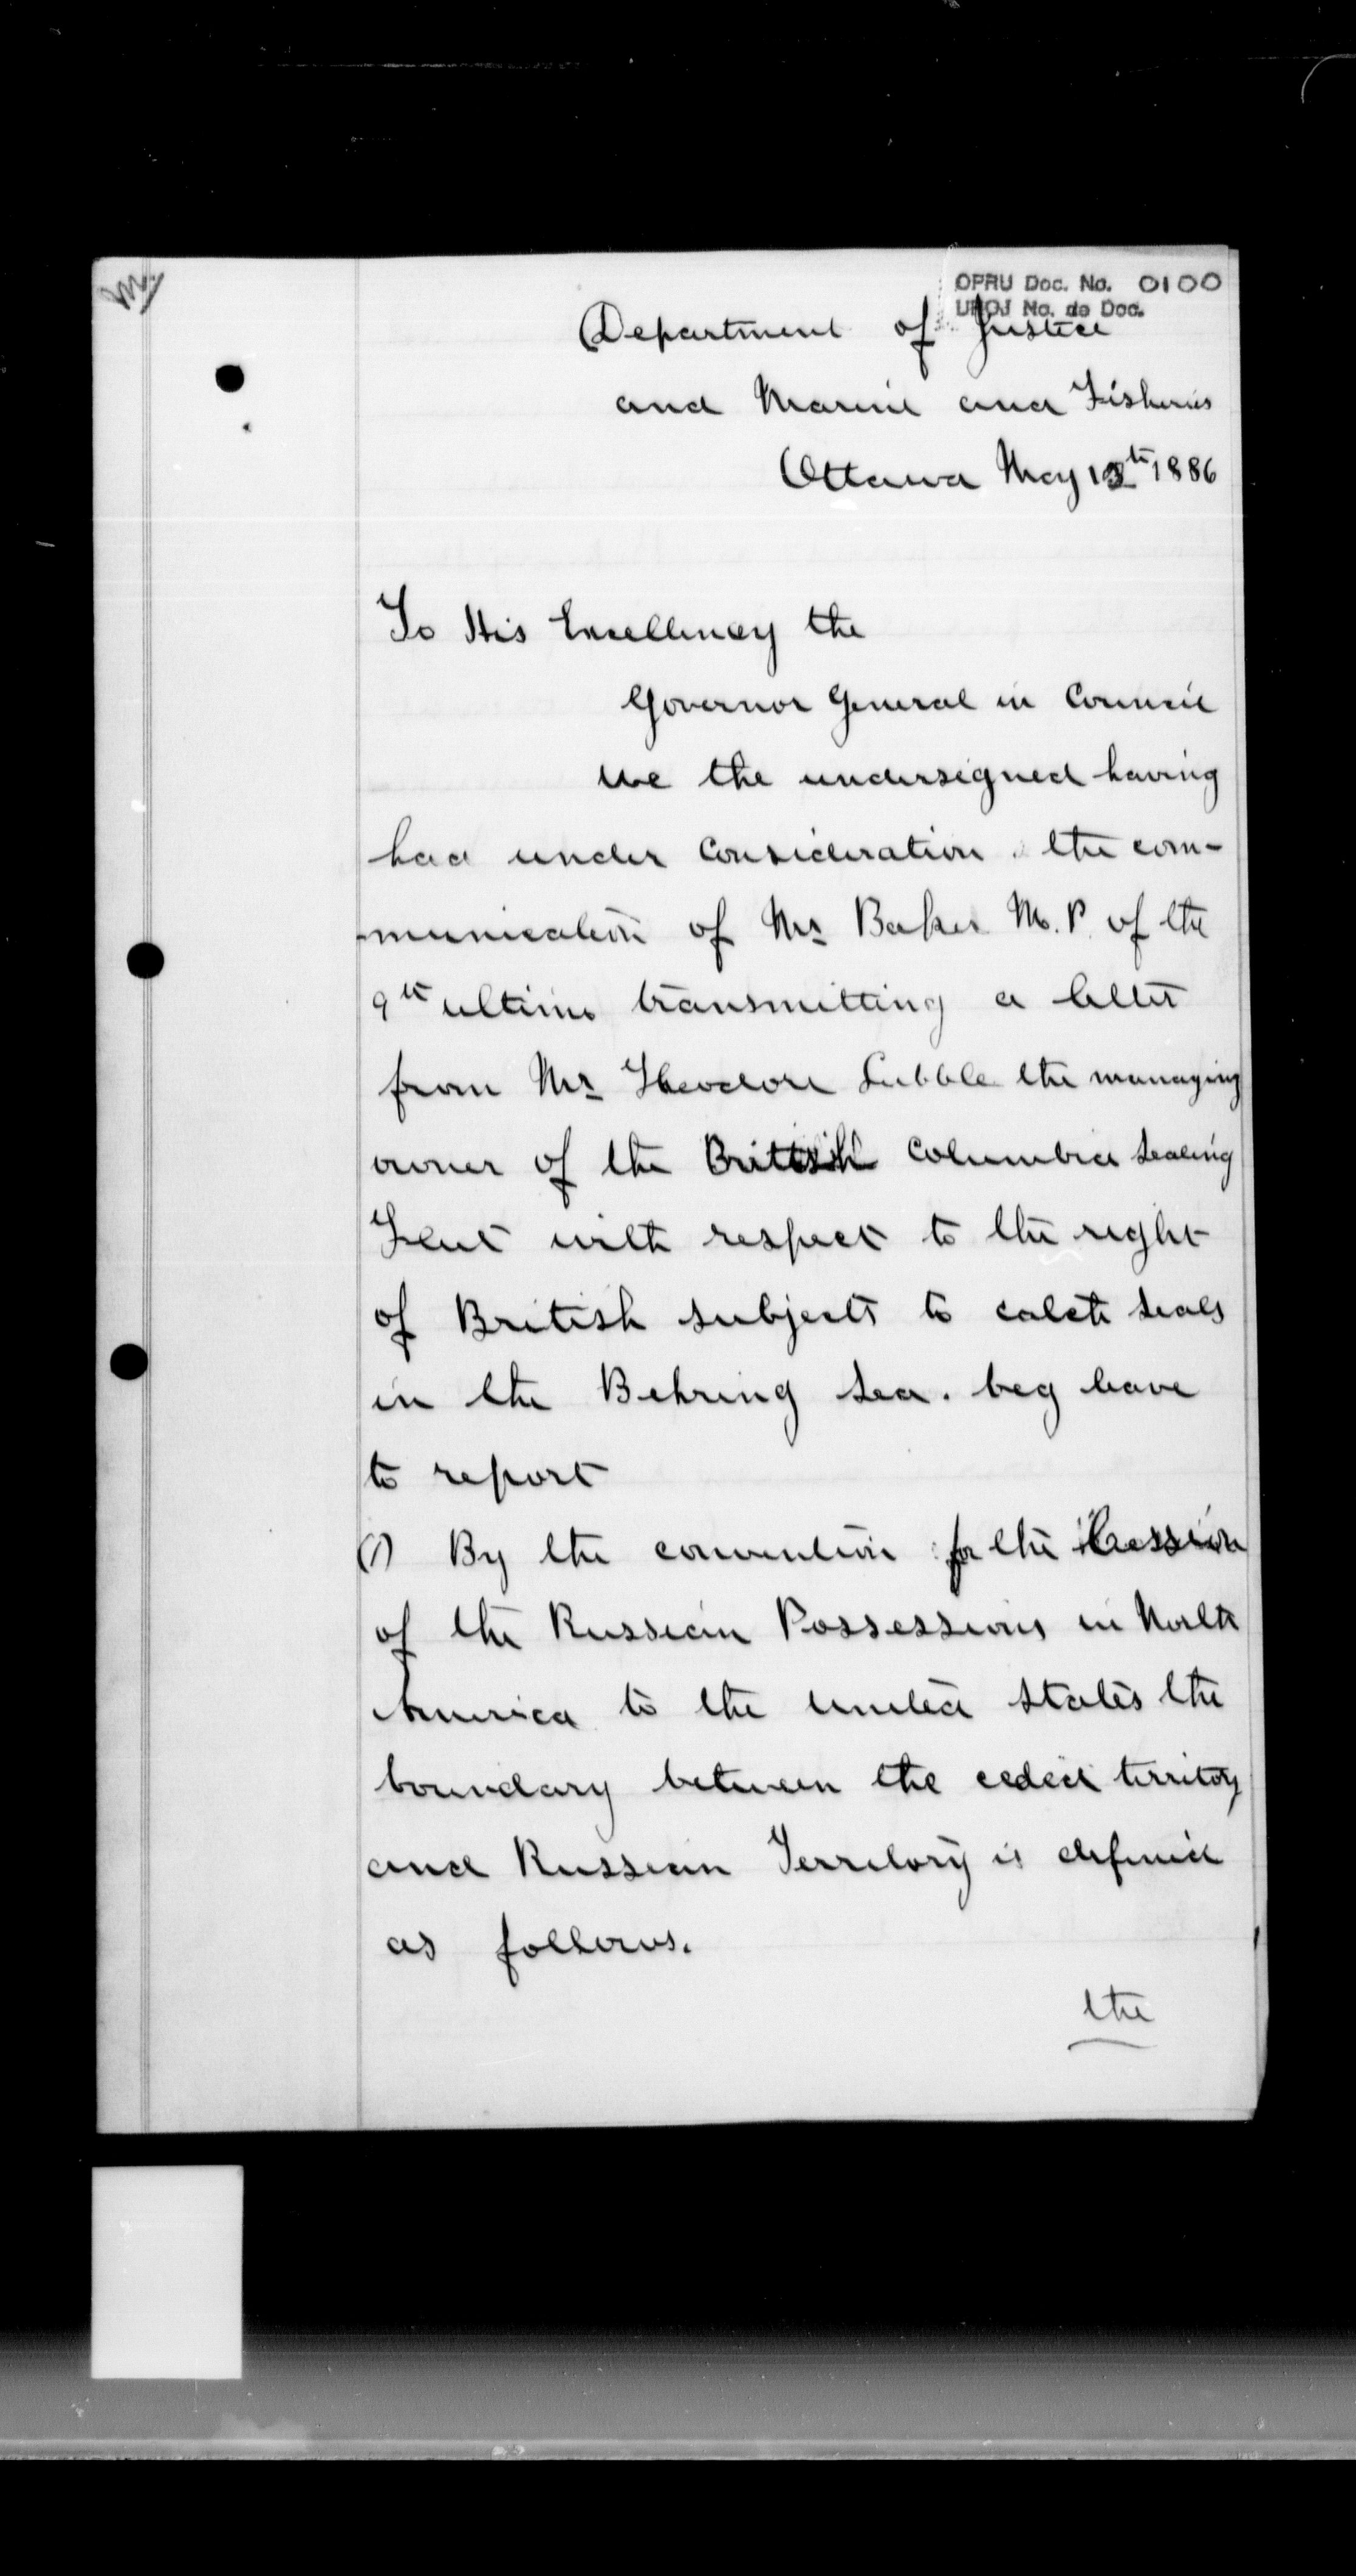 OPRU Doc. No. 0100
UROJ No. de Doc.
Department of Justice
and Marine and Fisheries
Ottawa May 13th 1886
To His Excellency the
Governor General in Council
We the undersigned having
had under consideration the com-
-munication of Mr Baker M.P. of the
9th ultimo transmitting a letter
from Mr Theodore Lubble the managing
owner of the British Columbia Sealing
Fleet with respect to the right
of British subjects to catch seals
in the Behring Sea. beg leave
to report
(1) By the convention for the Cession
of the Russian Possessions in North
America to the United States the
boundary between the ceded territory
and Russian Territory is defined
as follows.
the